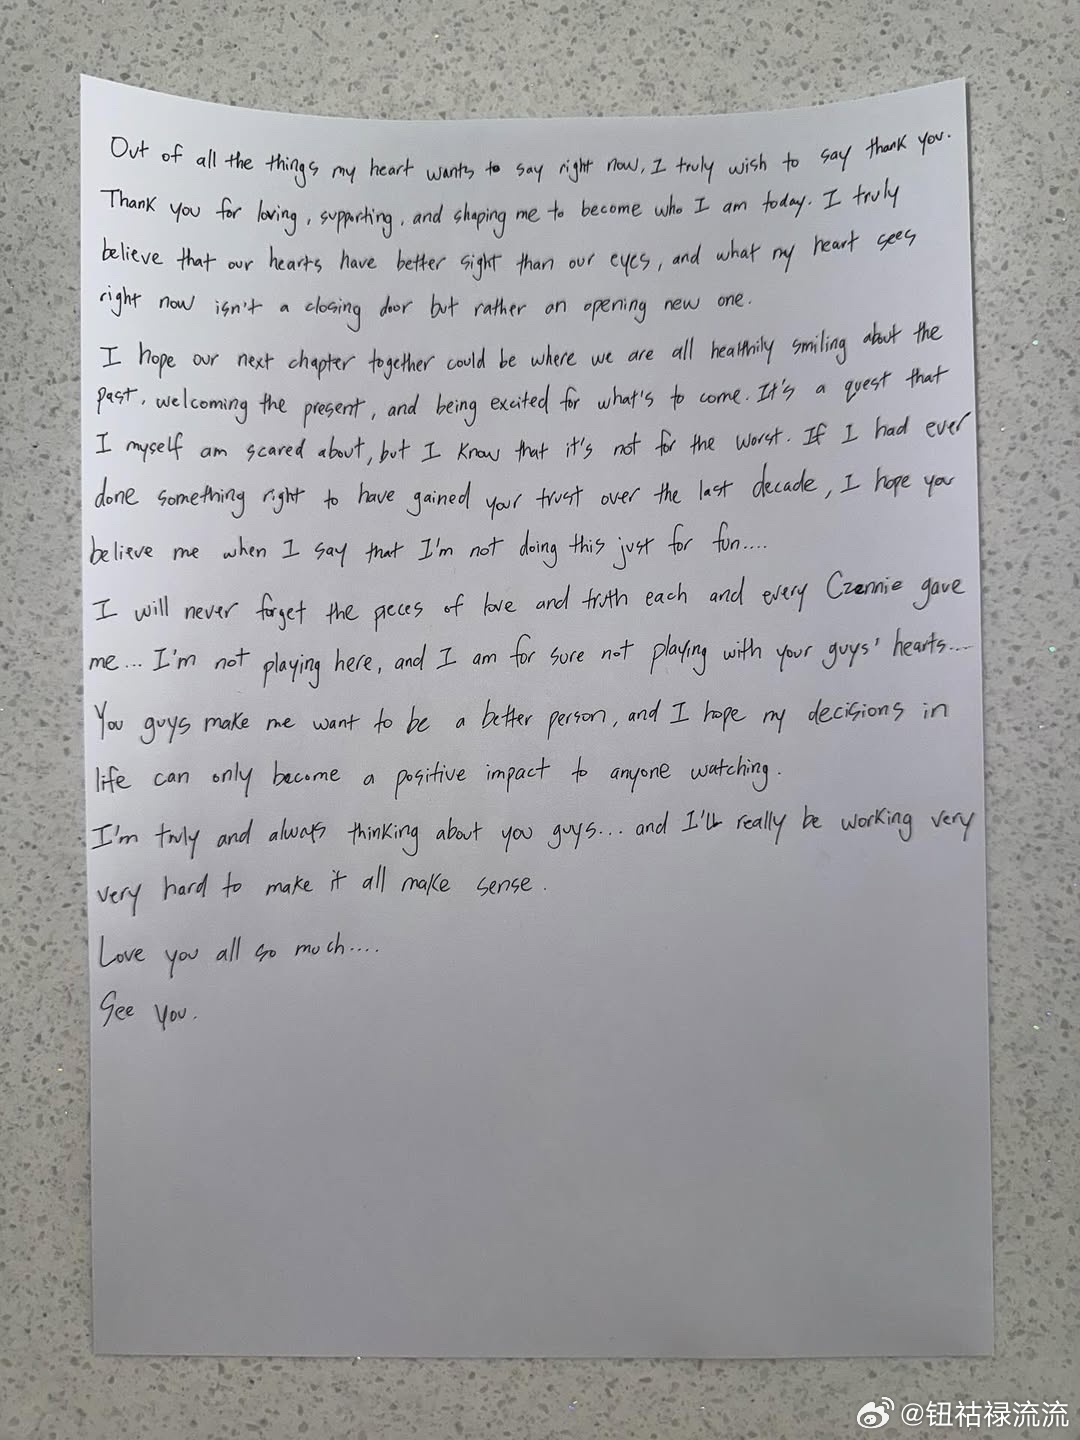 Out of all the things my heart wants to say right now, I truly wish to say thank you.
Thank you for loving, supporting, and shaping me to become who I am today. I truly
believe that our hearts have better sight than our eyes, and what my heart sees
right now isn't a closing door but rather an opening new one.
I hope our next chapter together could be where we are all healthily smiling about the
past, welcoming the present, and being excited for what's to come. It's a quest that
I myself am scared about, but I know that it's not for the worst. If I had ever
done something right to have gained your trust over the last decade, I hope you
believe me when I say that I'm not doing this just for fun....
I will never forget the pieces of love and truth each and every Czennie gave
me... I'm not playing here, and I am for sure not playing with your guys' hearts....
You guys make me want to be a better person, and I hope my decisions in
life can only become a positive impact to anyone watching.
I'm truly and always thinking about you guys... and I'll really be working very
very hard to make it all make sense.
Love you all so much....
See you.
@钮祜禄流流